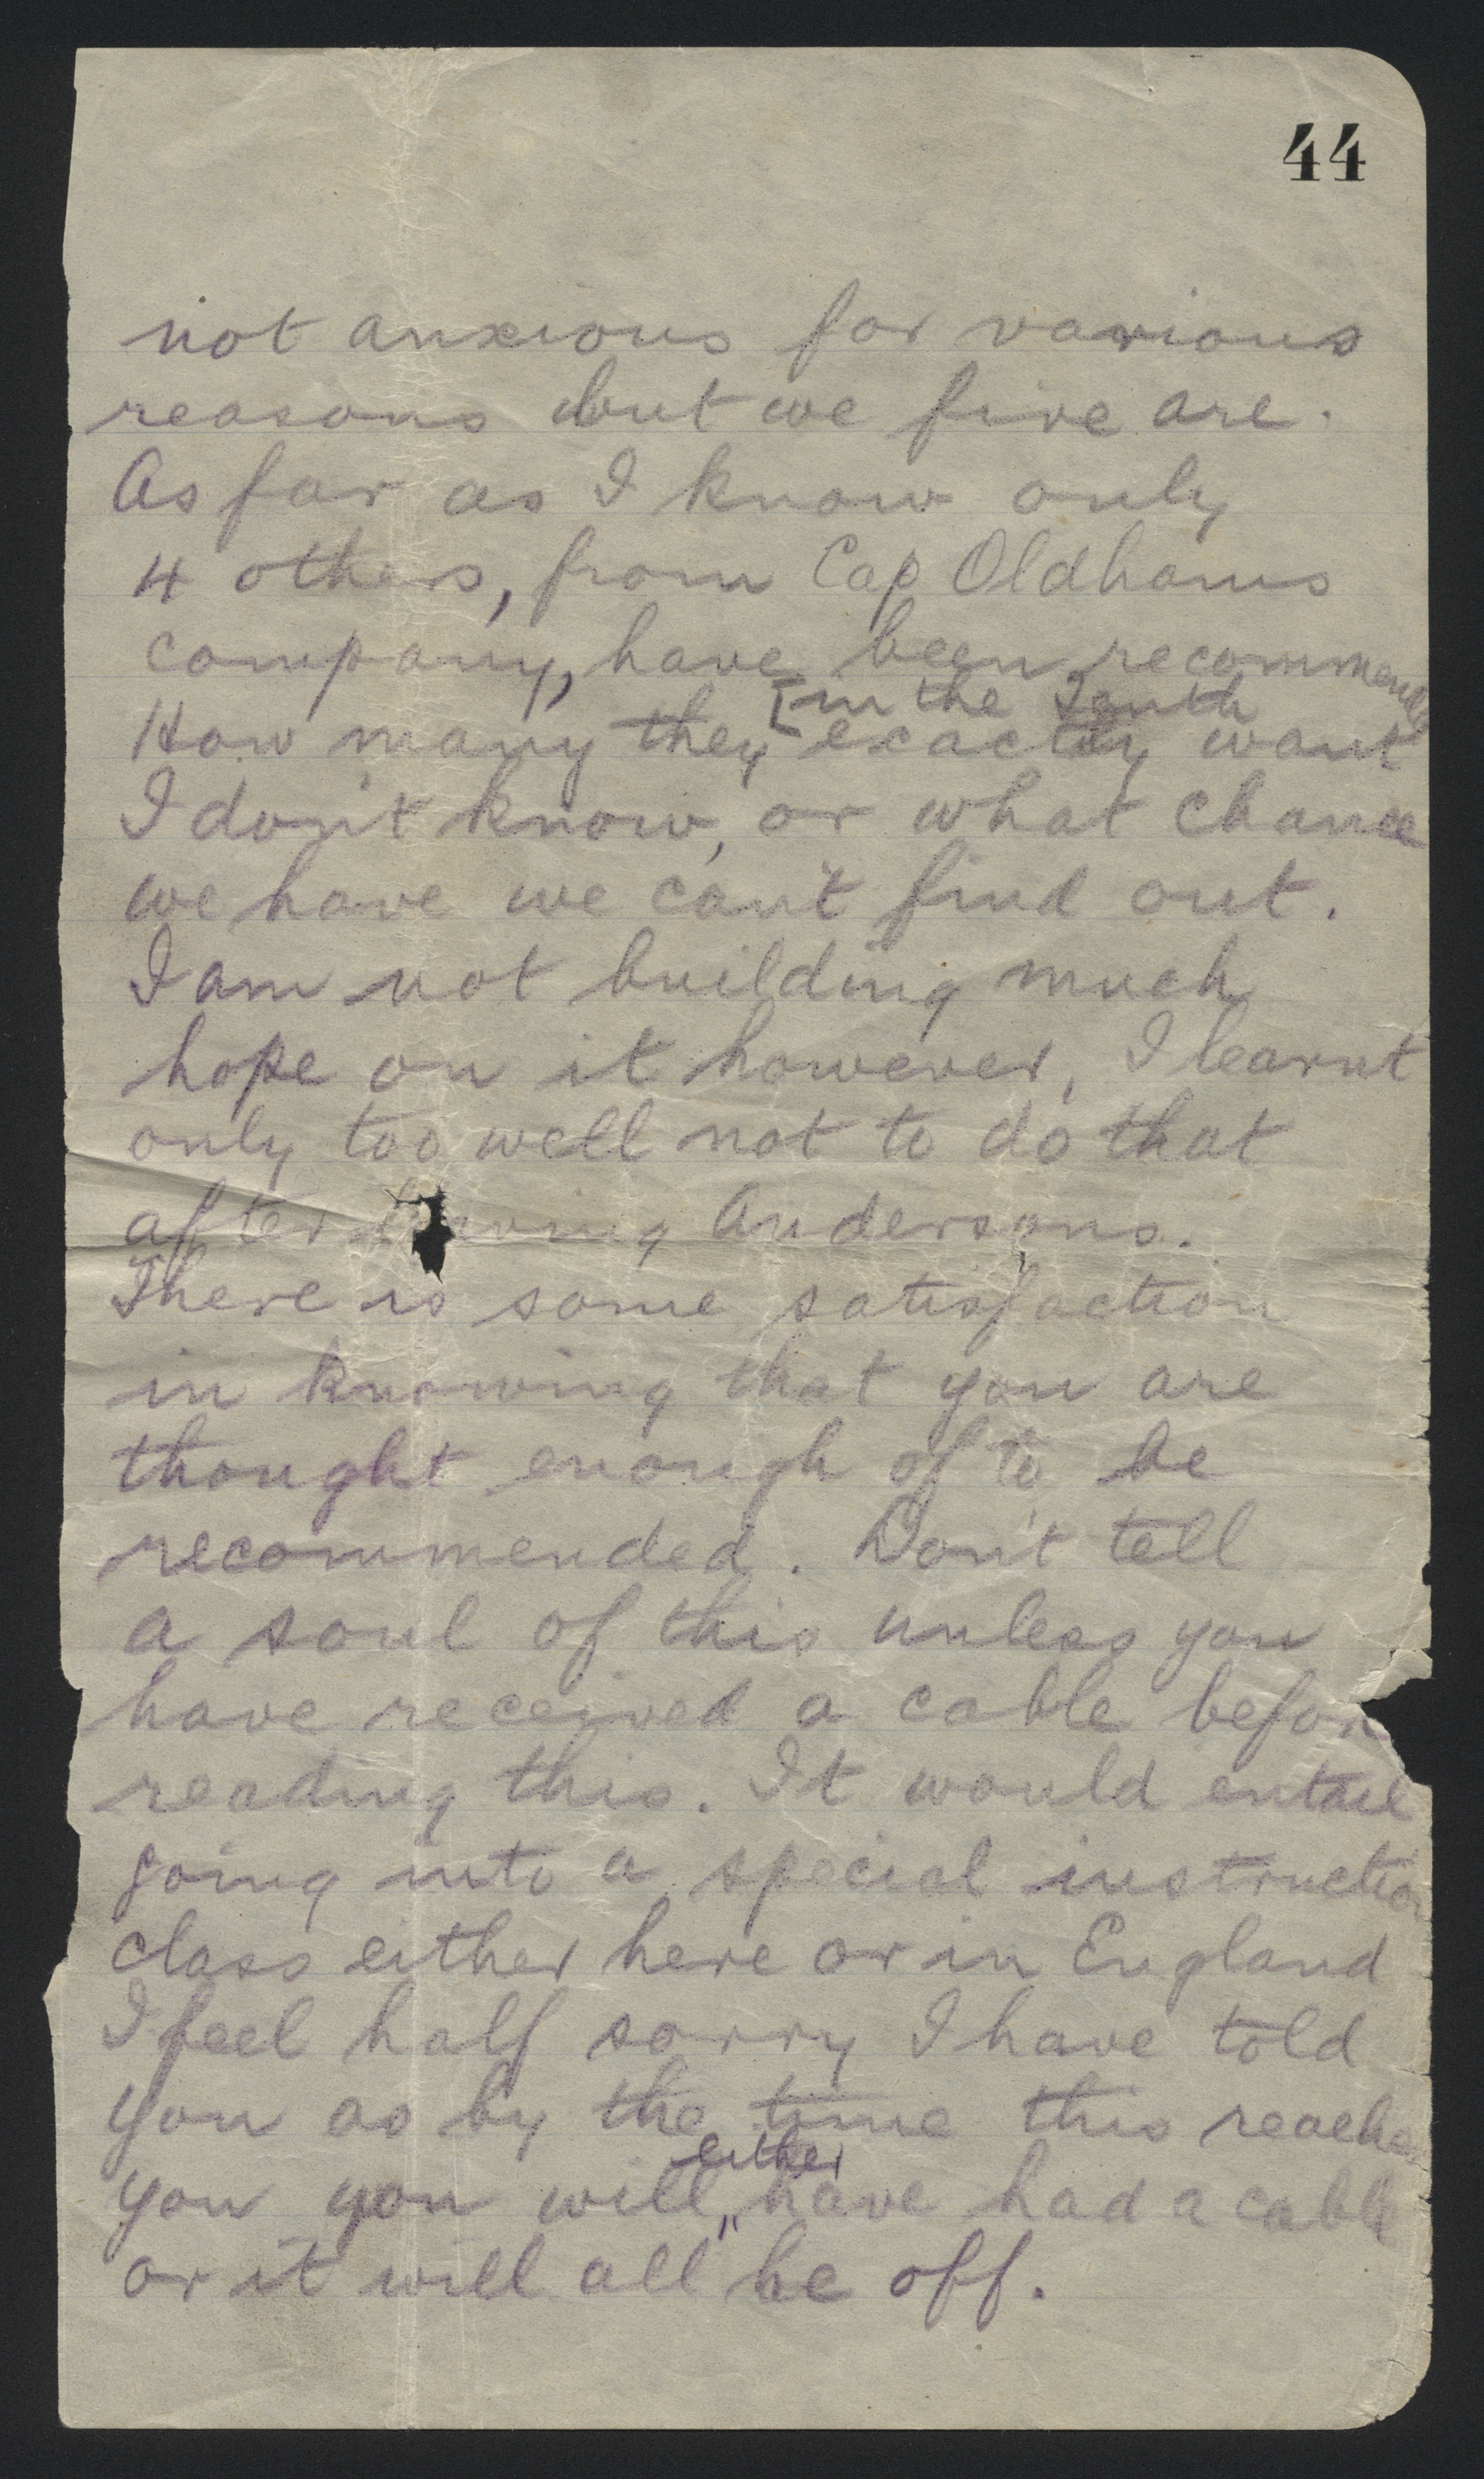 44
not anxious for various
reasons but we five are.
As far as I know only
4 others, from Cap Oldhams
company, have been recommended
[in the Tenth
How many they exactly want
I don't know, or what chance
we have we can't find out.
I am not building much
hope on it however, I learnt
only too well not to do that
after leaving Andersons.
There is some satisfaction
in knowing that you are
thought enough of to be
recommended. Don't tell
a soul of this unless you
have received a cable before
reading this. It would entail
going into a special instruction
class either here or in England
I feel half sorry I have told
you as by the time this reaches
either
you you will have had a cable
or it will all be off.